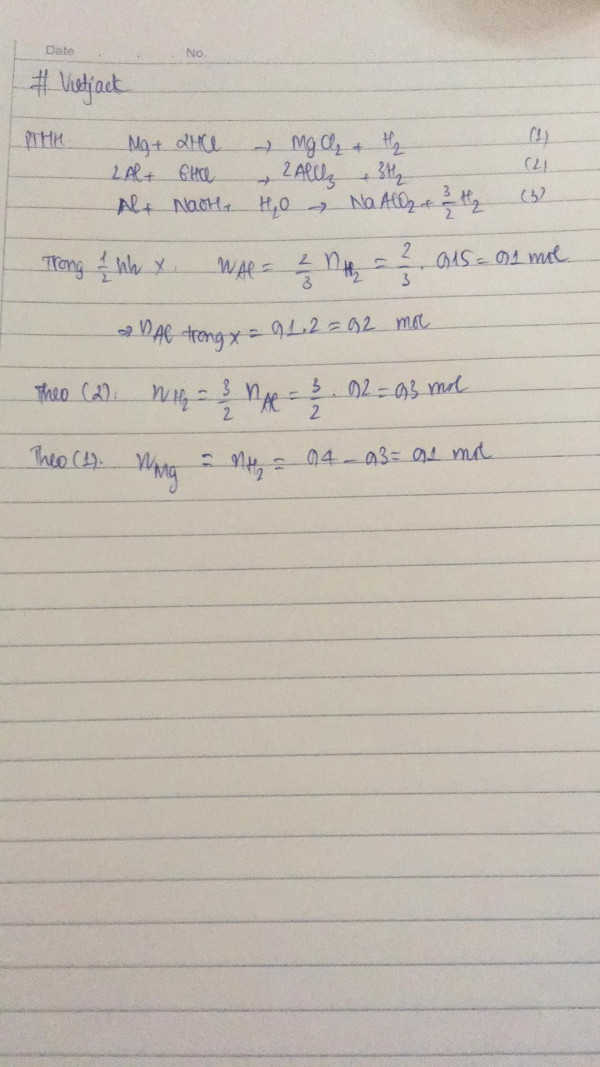 Date . . . No.
# Vietjack
PTHH Mg + 2HCl → MgCl₂ + H₂ (1)
2Al + 6HCl → 2AlCl₃ + 3H₂ (2)
Al + NaOH + H₂O → NaAlO₂ + 3/2 H₂ (3)
Trong 1/2 hh X. nAl = 2/3 nH₂ = 2/3 . 0,15 = 0,1 mol
⇒ nAl trong X = 0,1 . 2 = 0,2 mol
Theo (2): nH₂ = 3/2 nAl = 3/2 . 0,2 = 0,3 mol
Theo (1). nMg = nH₂ = 0,4 - 0,3 = 0,1 mol